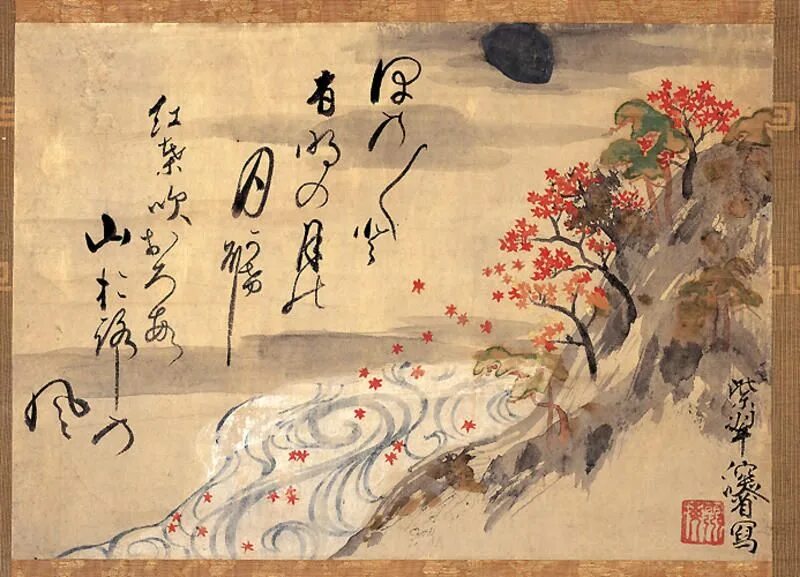 ほの〱と
有明の月の
月影に
紅葉吹おろす
山おろしの
風
紫翠深省寫